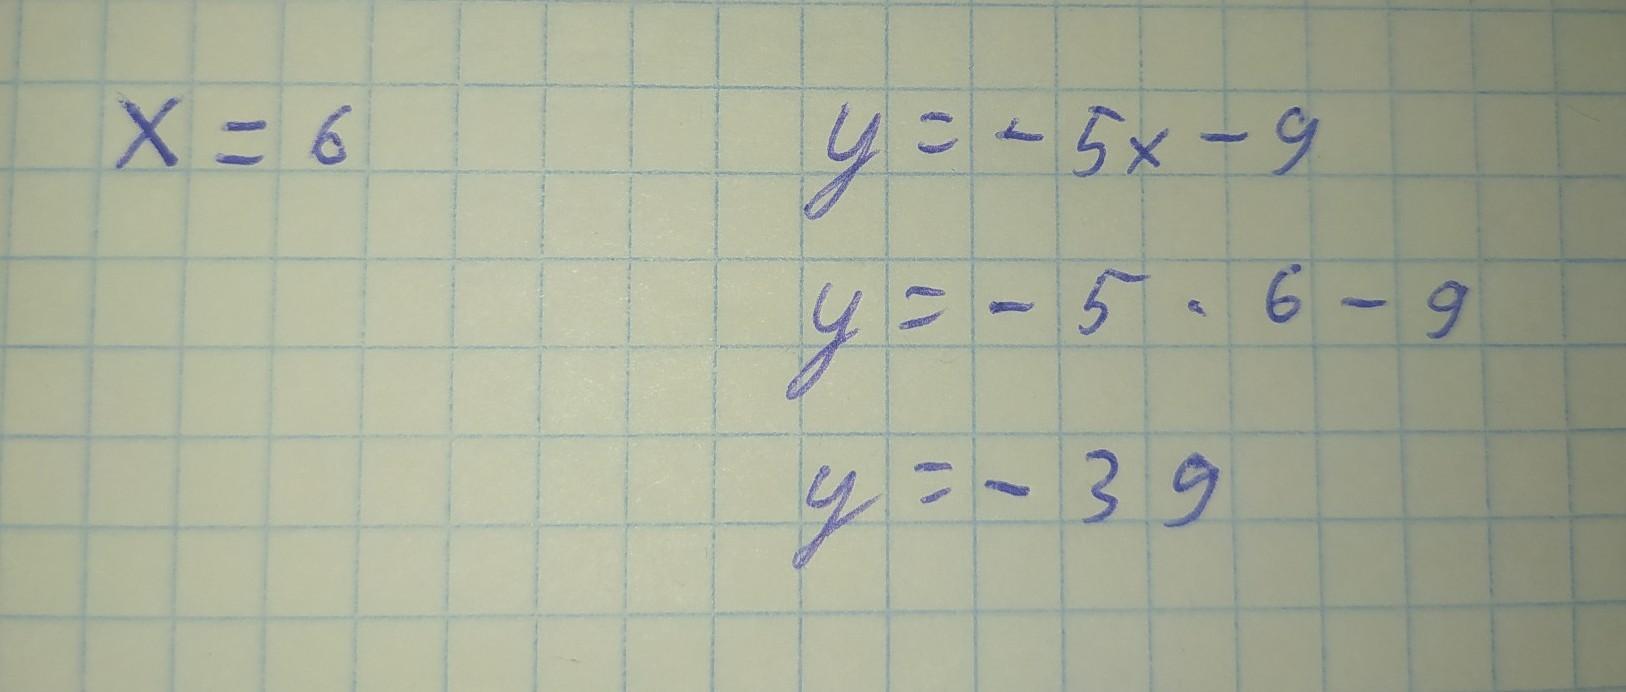 x = 6 y = - 5x - 9
y = - 5 · 6 - 9
y = - 39